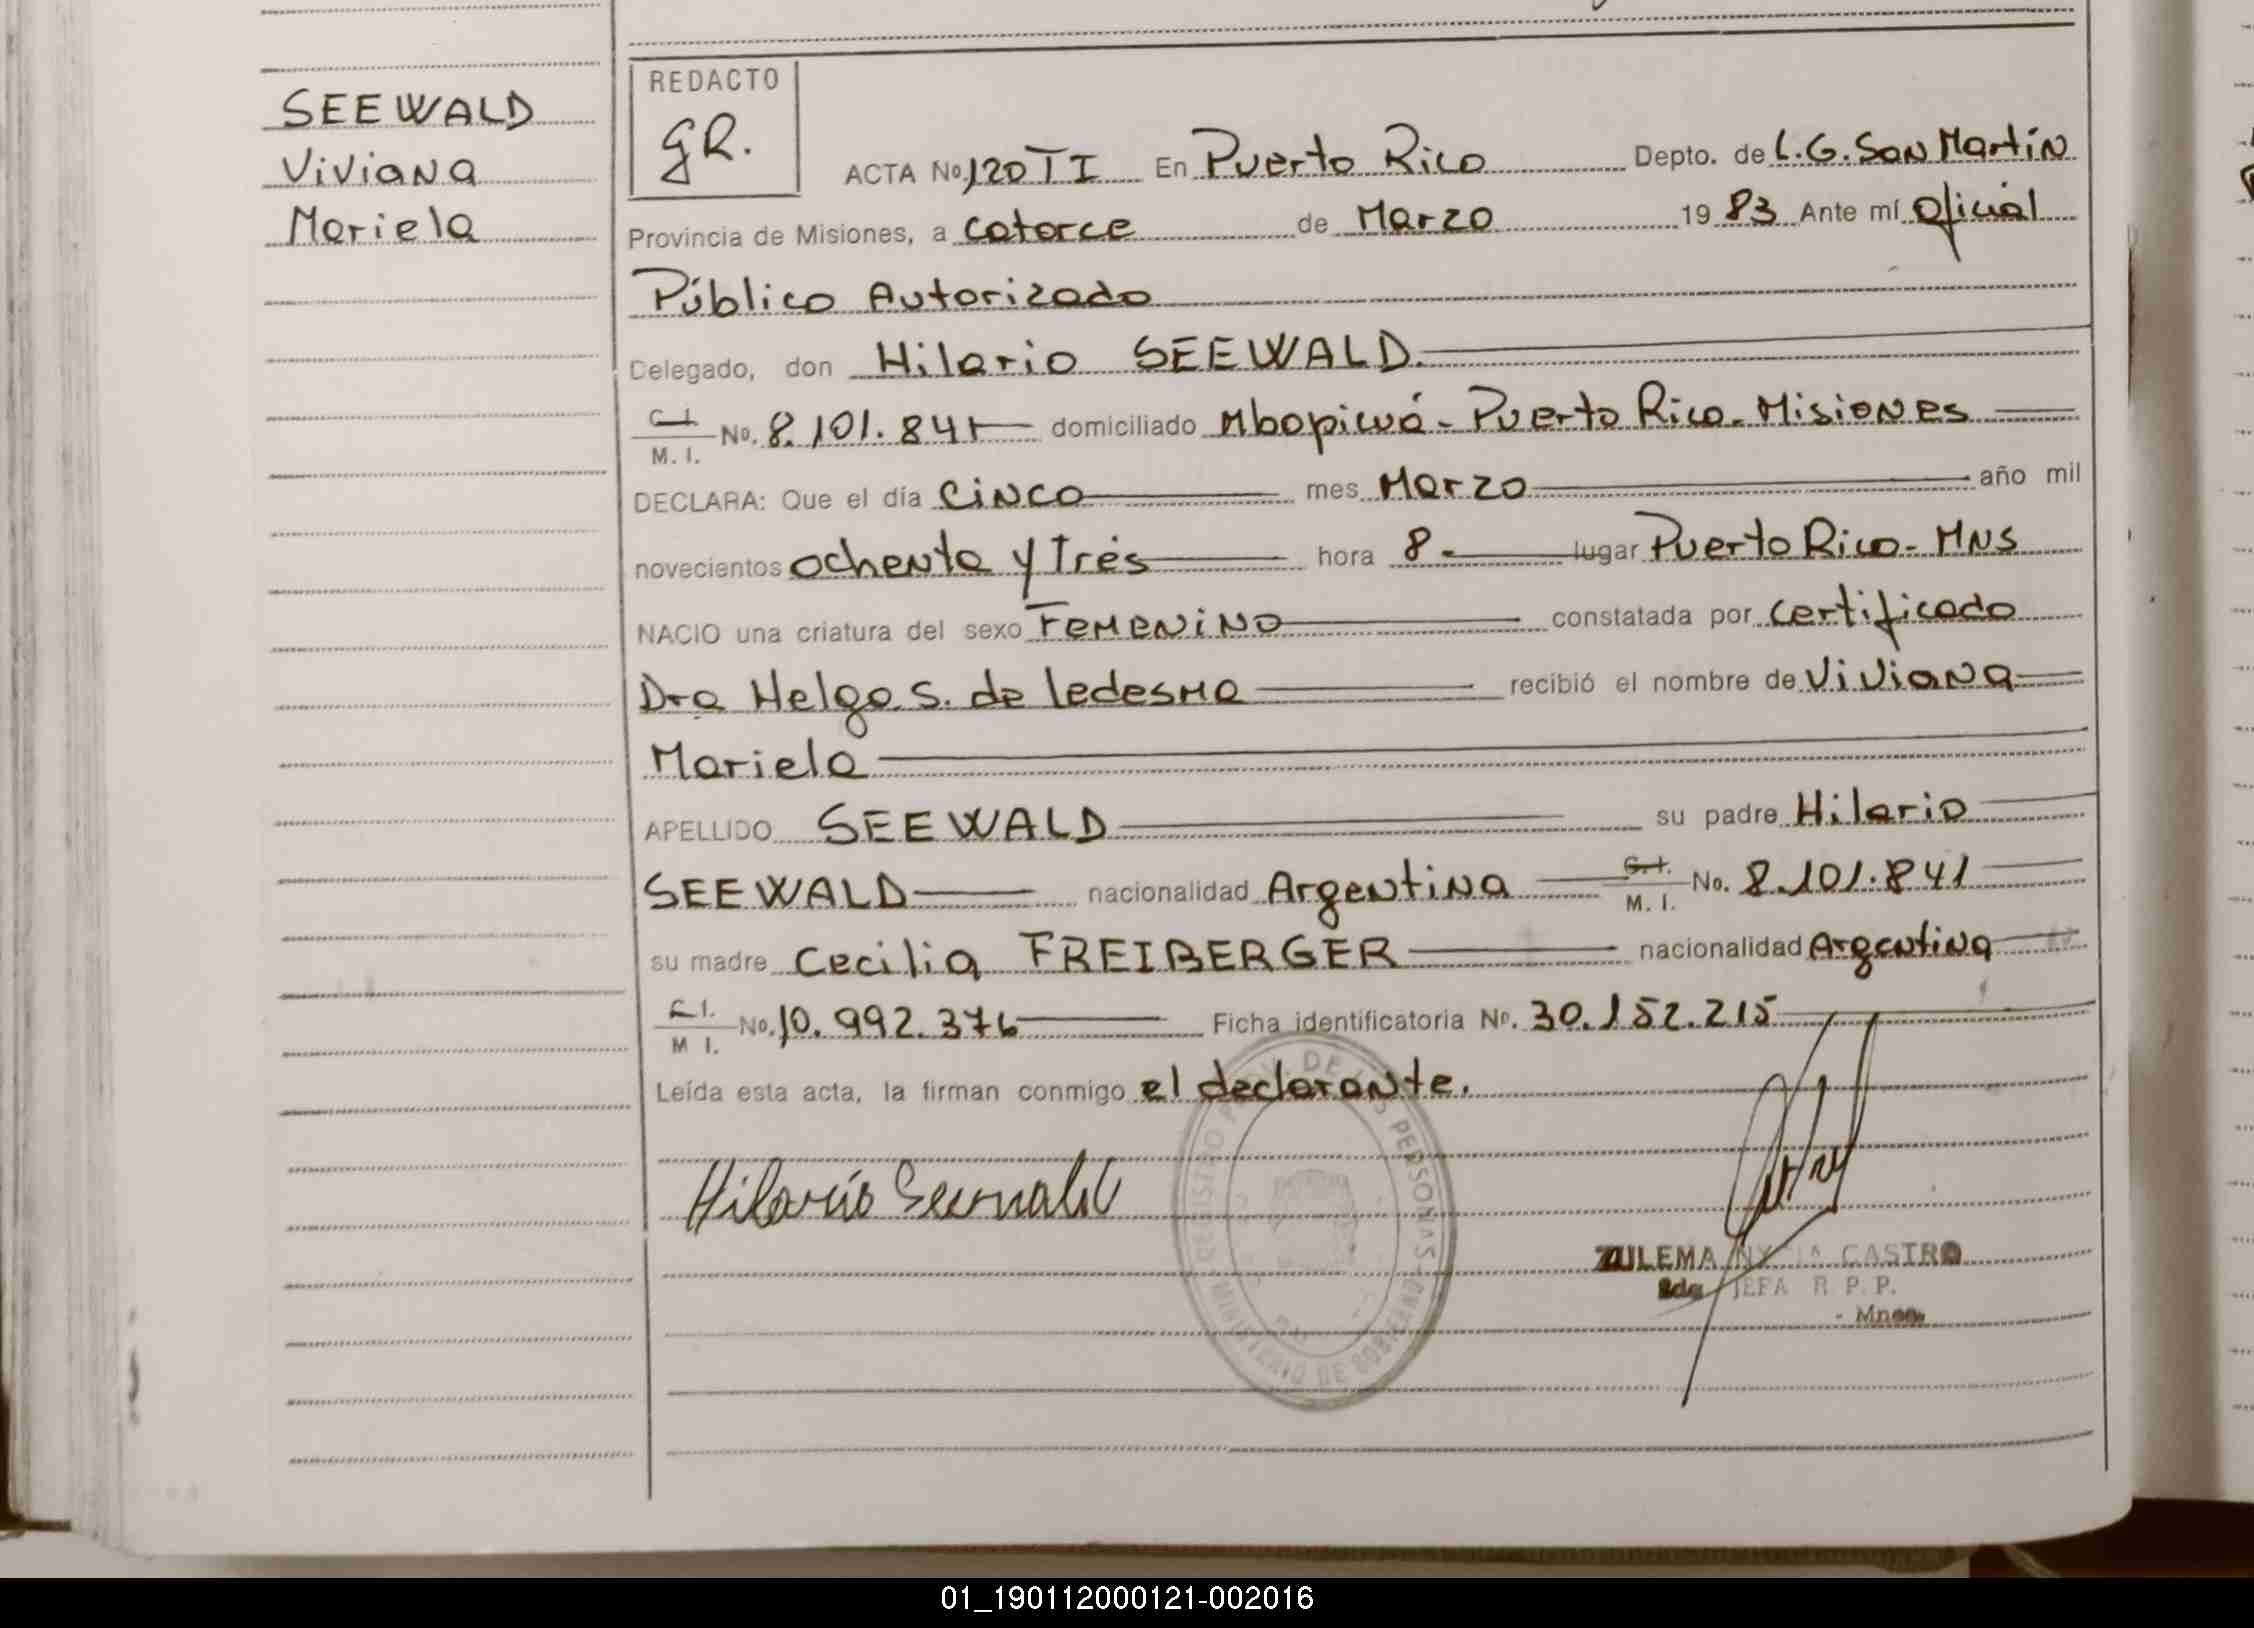 SEEWALD
Viviana
Mariela
REDACTO
GR.
ACTA No. 120 TI En Puerto Rico Depto. de L.G. San Martín
Provincia de Misiones, a catorce de Marzo 1983 Ante mí Oficial
Público Autorizado
Delegado, don Hilario SEEWALD.
C.I. M. I. No. 8.101.841 domiciliado Mbopicuá - Puerto Rico - Misiones
DECLARA: Que el día cinco mes Marzo año mil
novecientos ochenta y Trés hora 8- lugar Puerto Rico - MNS
NACIO una criatura del sexo Femenino constatada por certificado
Dra Helga S. de Ledesma recibió el nombre de Viviana
Mariela
APELLIDO SEEWALD su padre Hilario
SEEWALD nacionalidad Argentina C.I. M. I. No. 8.101.841
su madre Cecilia FREIBERGER nacionalidad Argentina
C.I. M I. No. 10.992.376 Ficha identificatoria No. 30.152.215
Leída esta acta, la firman conmigo el declarante.
Hilario Seewald
REGISTRO DE LAS PERSONAS
MINISTERIO DE GOBIERNO
ZULEMA CASTRO
JEFA R. P. P.
01_190112000121-002016